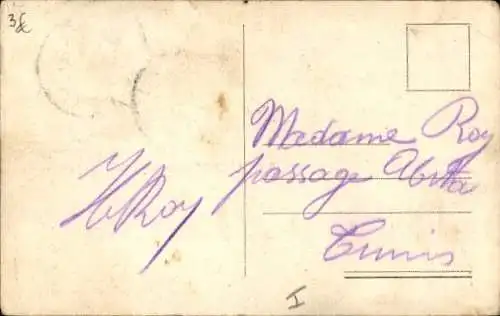 H Roy
Madame Roy
passage
Tunis
I